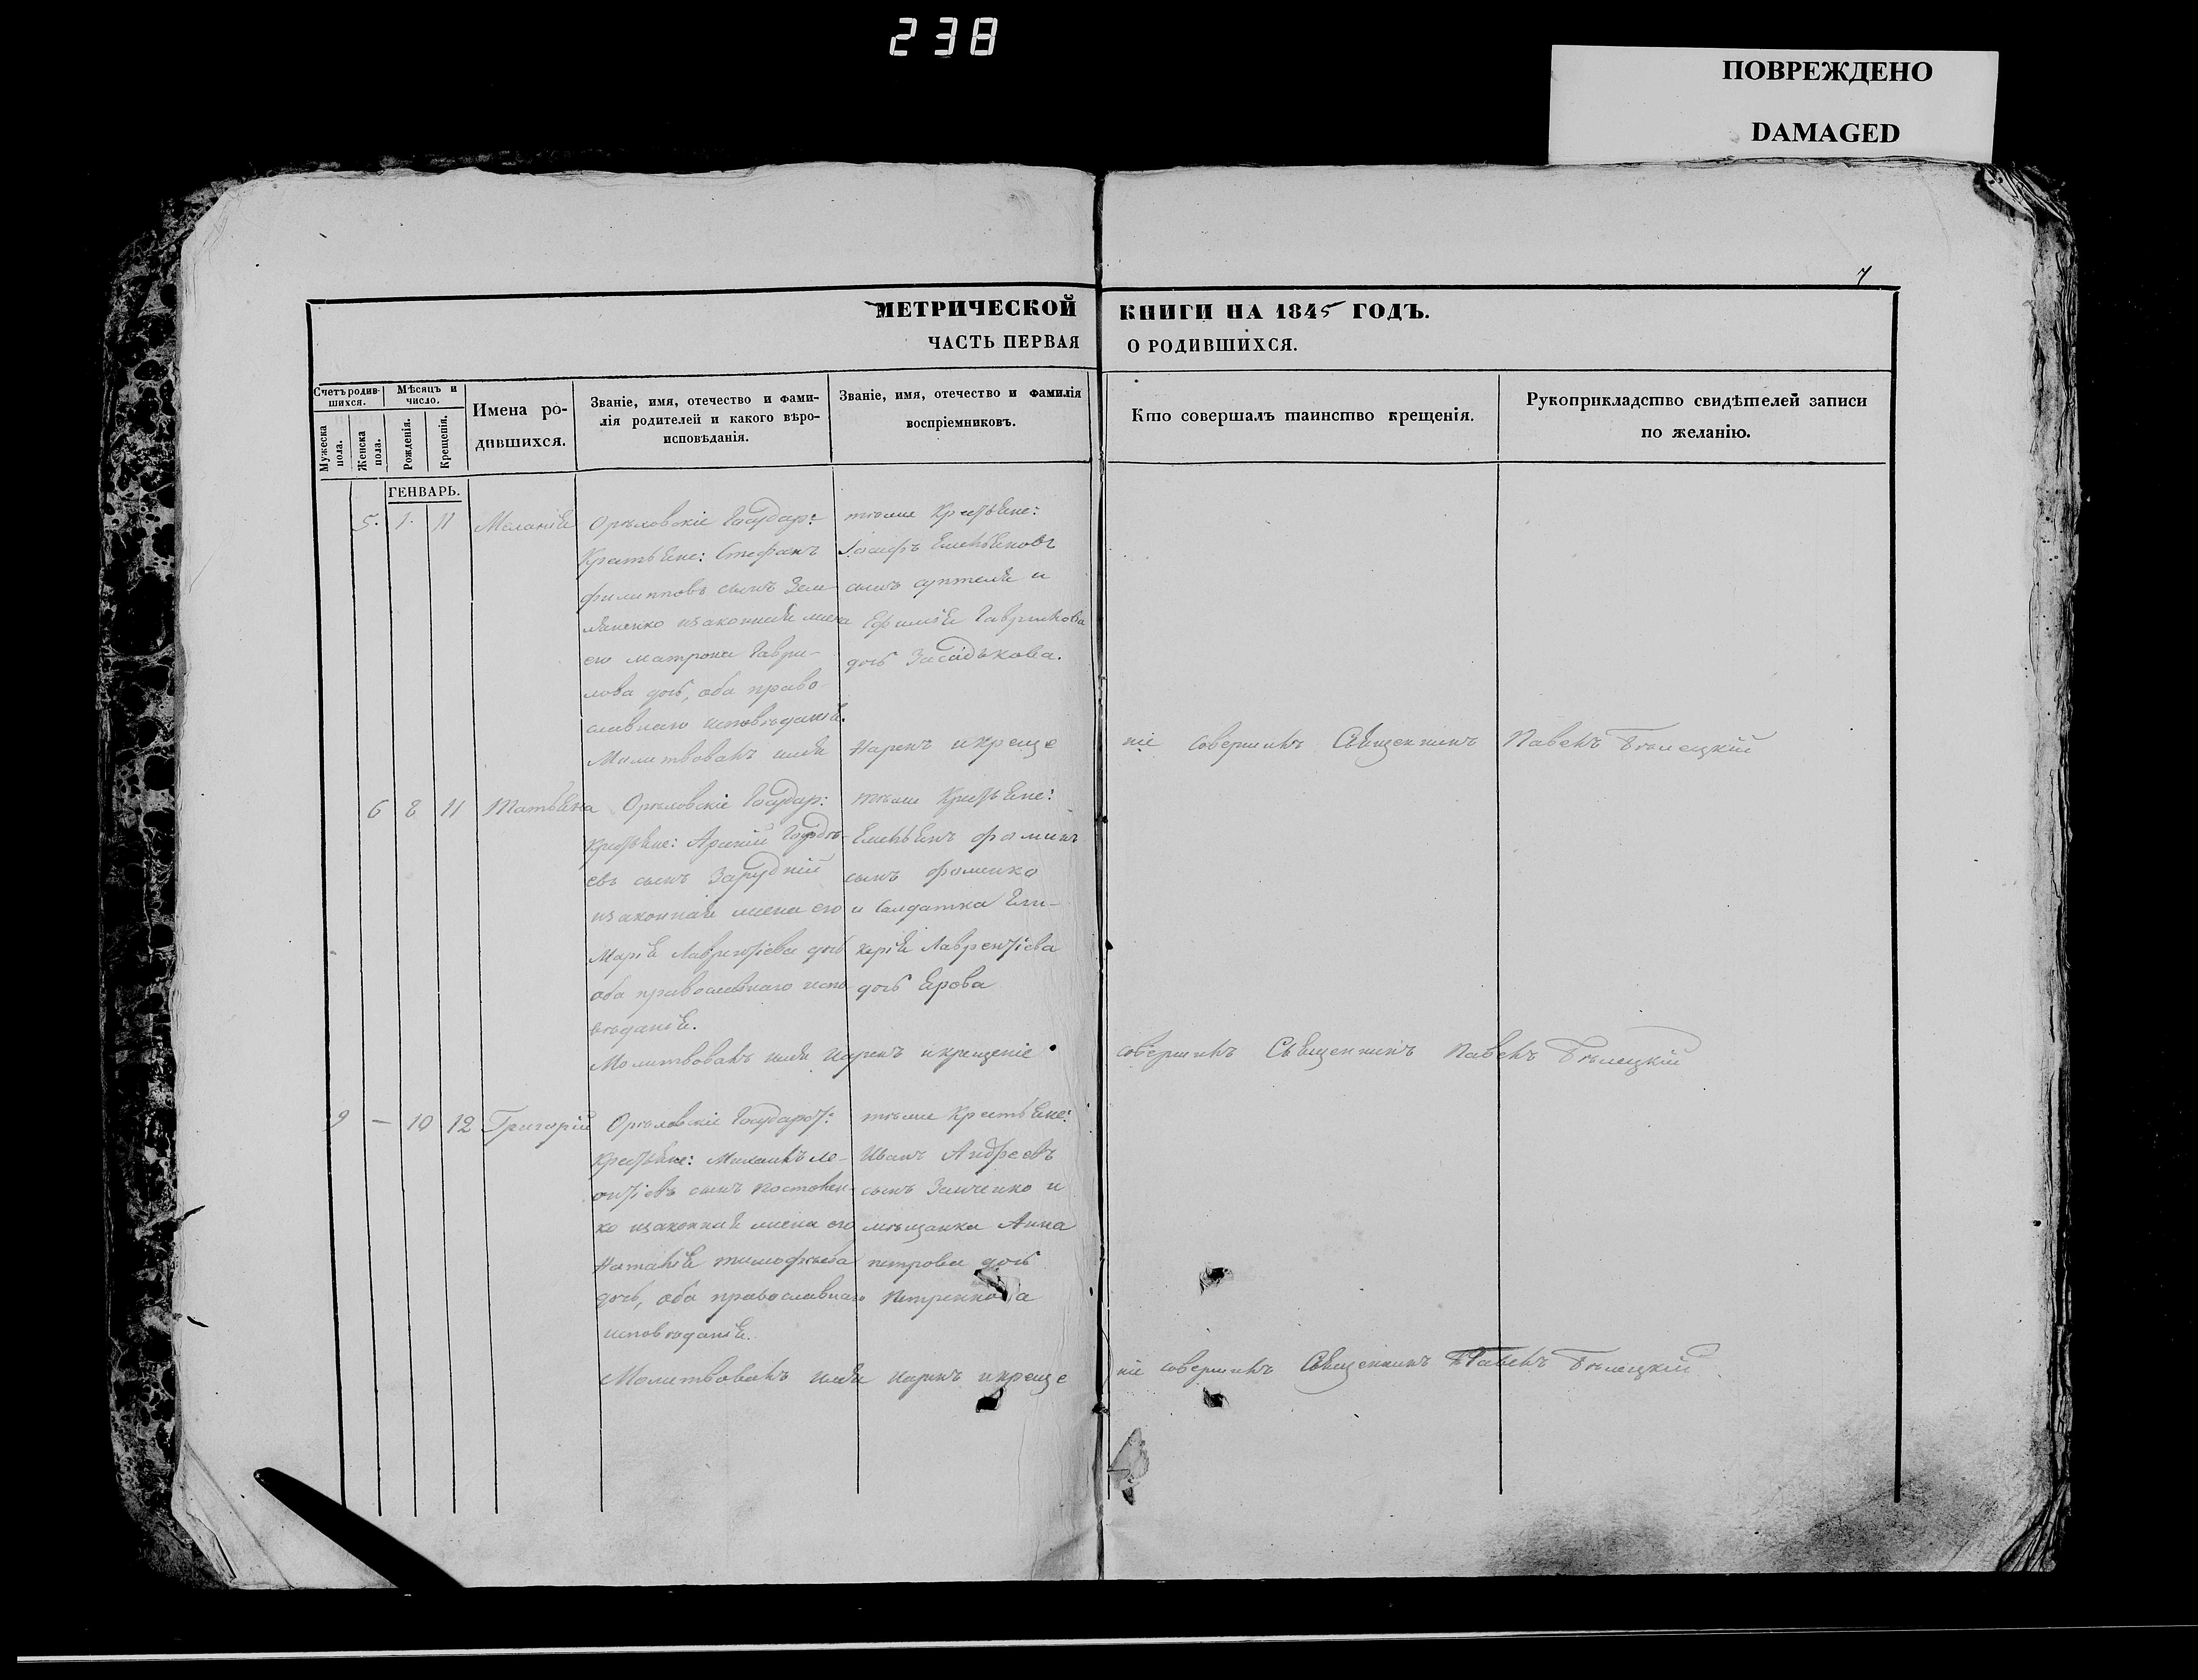 238
ПОВРЕЖДЕНО
DAMAGED
7
МЕТРИЧЕСКОЙ КНИГИ НА 1845 ГОДЪ.
ЧАСТЬ ПЕРВАЯ О РОДИВШИХСЯ.
Счетъ родившихся.
Мужеска пола.
Женска пола.
Мѣсяцъ и число.
Рожденія.
Крещенія.
Имена родившихся.
Званіе, имя, отечество и фамилія родителей и какого вѣроисповѣданія.
Званіе, имя, отечество и фамилія воспріемниковъ.
Кто совершалъ таинство крещенія.
Рукоприкладство свидѣтелей записи по желанію.
ГЕНВАРЬ.
5. 1. 11 Меланія
Орѣховскіе Государ:
Крестьяне: Стефанъ
филипповъ сынъ Зем
ляненко изаконная жена
его матрона Гаври-
лова дочь, оба право
славнаго исповѣданія.
тѣже Крестьяне:
Іосифъ Емельяновъ
сынъ и
Ефимія Гаврилова
дочь Засядькова.
Молитвовалъ имя нарекъ икреще
ніе совершилъ Священникъ Павелъ Бѣлецкій
6 8 11 Татьяна
Орѣховскіе Государ:
Крестьяне: Арсеній
евъ сынъ Зарудній
изаконная жена его
Марія Лаврентіева дочь
оба православнаго испо
вѣданія.
тѣже Крестьяне:
Емельянъ фоминъ
сынъ фоменко
и Солдатка Гли-
керія Лаврентіева
дочь Ярова
Молитвовалъ имя нарекъ икрещеніе
совершилъ Священникъ Павелъ Бѣлецкій
9 — 10 12 Григорій
Орѣховскіе Государст:
Крестьяне: Михаилъ Ле-
онтіевъ сынъ Костовен-
ко изаконная жена его
Наталія тимофѣева
дочь, оба православнаго
исповѣданія.
тѣже Крестьяне:
Иванъ Андреевъ
сынъ Заиченко и
мѣщанка Анна
петрова дочь
Петренкова
Молитвовалъ имя нарекъ икреще
ніе совершилъ Священникъ Павелъ Бѣлецкій